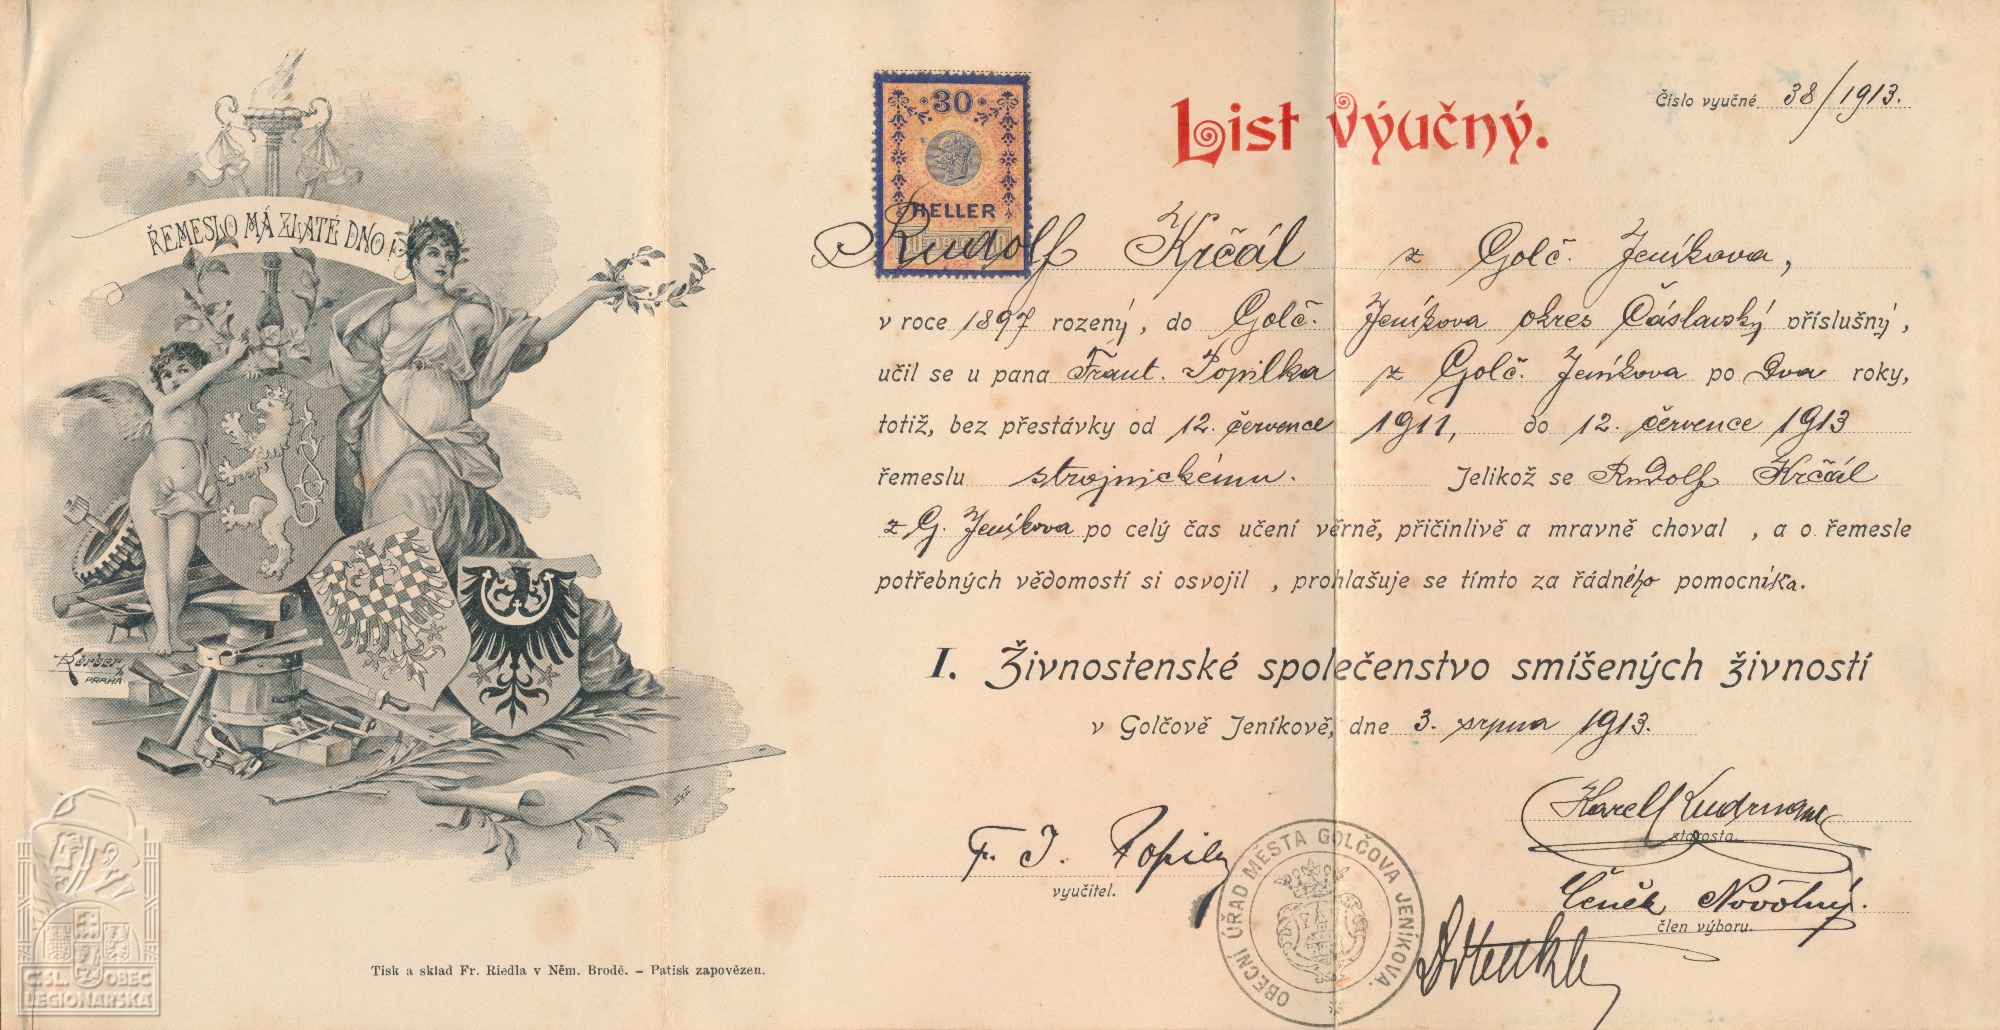 ŘEMESLO MÁ ZLATÉ DNO
Körber
PRAHA
Tisk a sklad Fr. Riedla v Něm. Brodě. – Patisk zapovězen.
ČSL. OBEC
LEGIONÁŘSKÁ
30
HELLER
List výučný.
Číslo vyučné 38/1913.
Rudolf Krčál z Golč. Jeníkova,
v roce 1897 rozený, do Golč. Jeníkova okres Čáslavský příslušný,
učil se u pana Frant. Popilka z Golč. Jeníkova po dva roky,
totiž, bez přestávky od 12. července 1911, do 12. července 1913
řemeslu strojnickému. Jelikož se Rudolf Krčál
z G. Jeníkova po celý čas učení věrně, přičinlivě a mravně choval, a o řemesle
potřebných vědomostí si osvojil, prohlašuje se tímto za řádného pomocníka.
I. Živnostenské společenstvo smíšených živností
v Golčově Jeníkově, dne 3. srpna 1913.
F. J. Popilka
vyučitel.
OBECNÍ ÚŘAD MĚSTA GOLČOVA JENÍKOVA.
Karel
starosta.
Čeněk Novotný.
člen výboru.